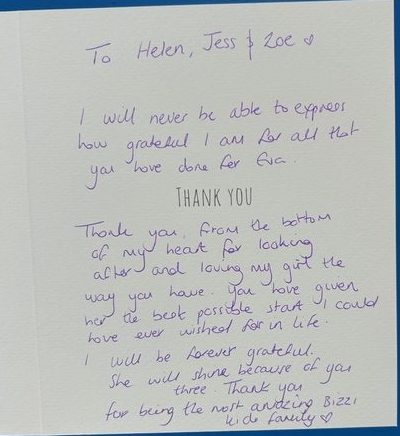 To Helen, Jess & Zoe ♡
I will never be able to express
how grateful I am for all that
you have done for Eva.
THANK YOU
Thank you, from the bottom
of my heart for looking
after and loving my girl the
way you have. You have given
her the best possible start I could
have ever wished for in life.
I will be forever grateful.
She will shine because of you
three. Thank you
for being the most amazing Bizzi
kids family ♡